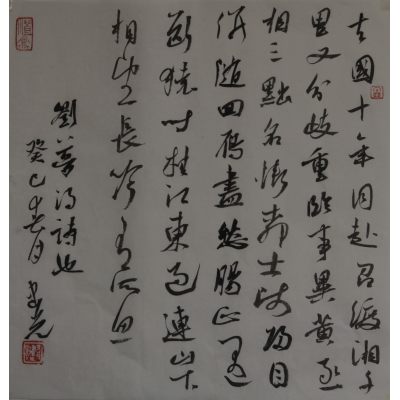 去國十年同赴召渡湘千
里又分歧重臨事異黃丞
相三黜名慚柳士師歸目
併隨回雁盡愁腸正遇
斷猿時桂江東過連山下
相望長吟有所思
劉禹錫詩也
癸巳 月 光